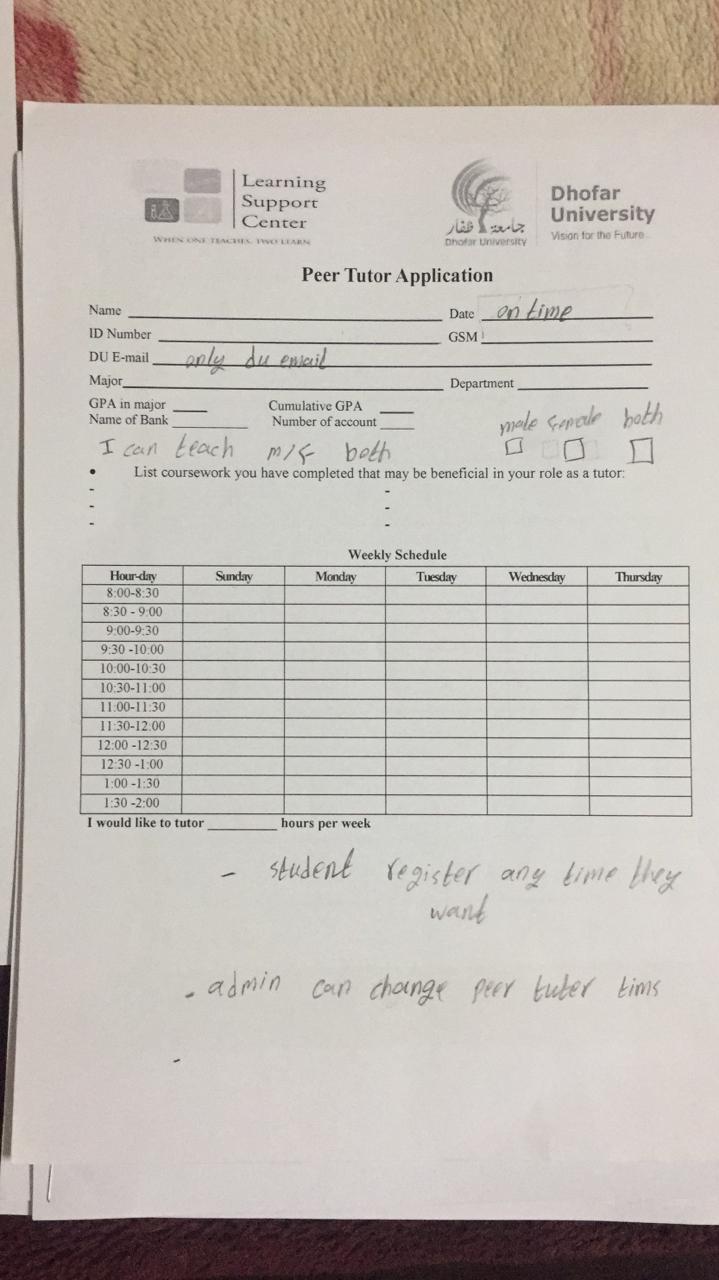 Learning
Support
Center
WHEN ONE TEACHES, TWO LEARN
جامعة ظفار
Dhofar University
Dhofar
University
Vision for the Future
Peer Tutor Application
Name Date on time
ID Number GSM
DU E-mail only du email
Major Department
GPA in major Cumulative GPA
Name of Bank Number of account
male female both
I can teach m/f both
• List coursework you have completed that may be beneficial in your role as a tutor:
- -
- -
- -
Weekly Schedule
Hour-day Sunday Monday Tuesday Wednesday Thursday
8:00-8:30
8:30 - 9:00
9:00-9:30
9:30 -10:00
10:00-10:30
10:30-11:00
11:00-11:30
11:30-12:00
12:00 -12:30
12:30 -1:00
1:00 -1:30
1:30 -2:00
I would like to tutor ________ hours per week
- student register any time they
want
- admin can change peer tuter tims
-